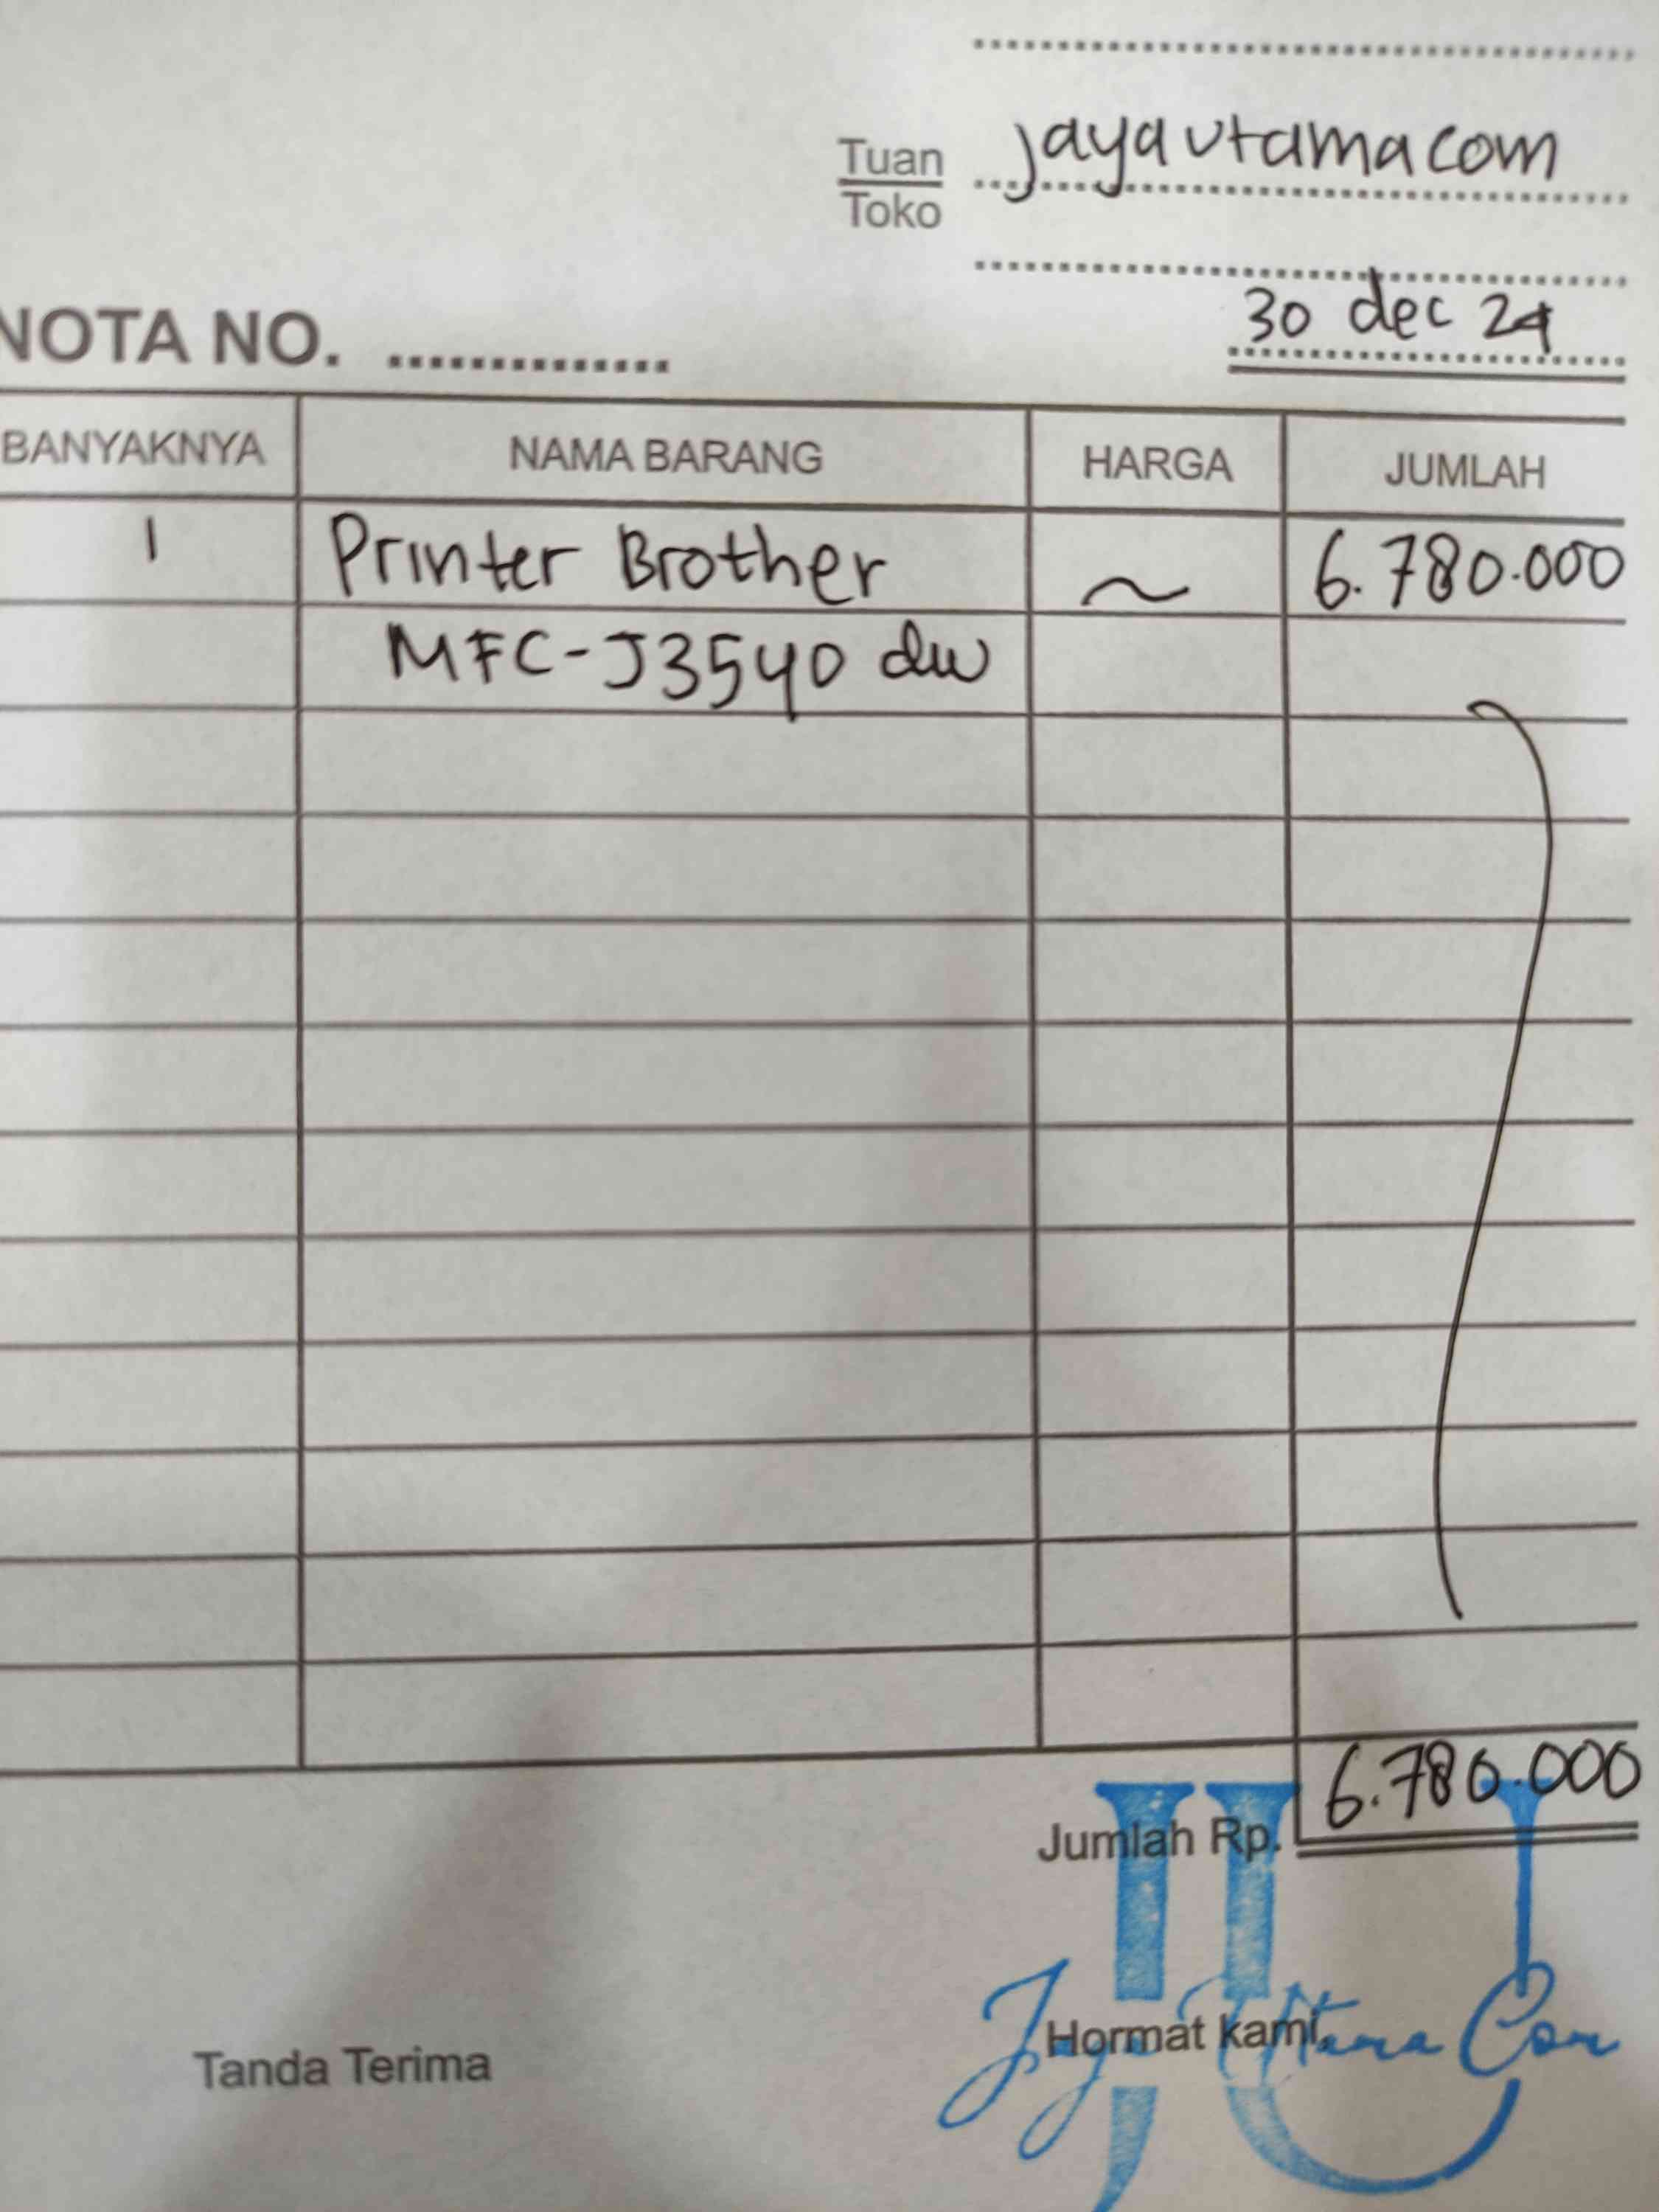 Tuan
Toko
jaya utama com
30 dec 24
NOTA NO. ..............
BANYAKNYA NAMA BARANG HARGA JUMLAH
1 Printer Brother ~ 6.780.000
MFC-J3540 dw
Jumlah Rp. 6.780.000
JU
Jaya Utama Com
Tanda Terima Hormat kami,